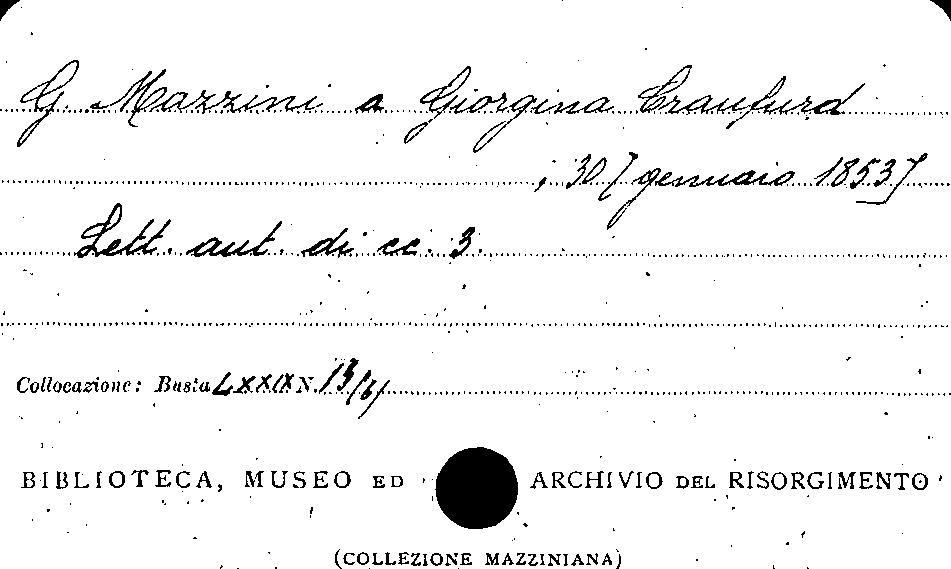 G. Mazzini a Giorgina Craufurd
, 30 [gennaio 1853]
Lett. aut. di cc. 3.
Collocazione: Busta LXXIX N. 13/6/
BIBLIOTECA, MUSEO ED ARCHIVIO DEL RISORGIMENTO
(COLLEZIONE MAZZINIANA)